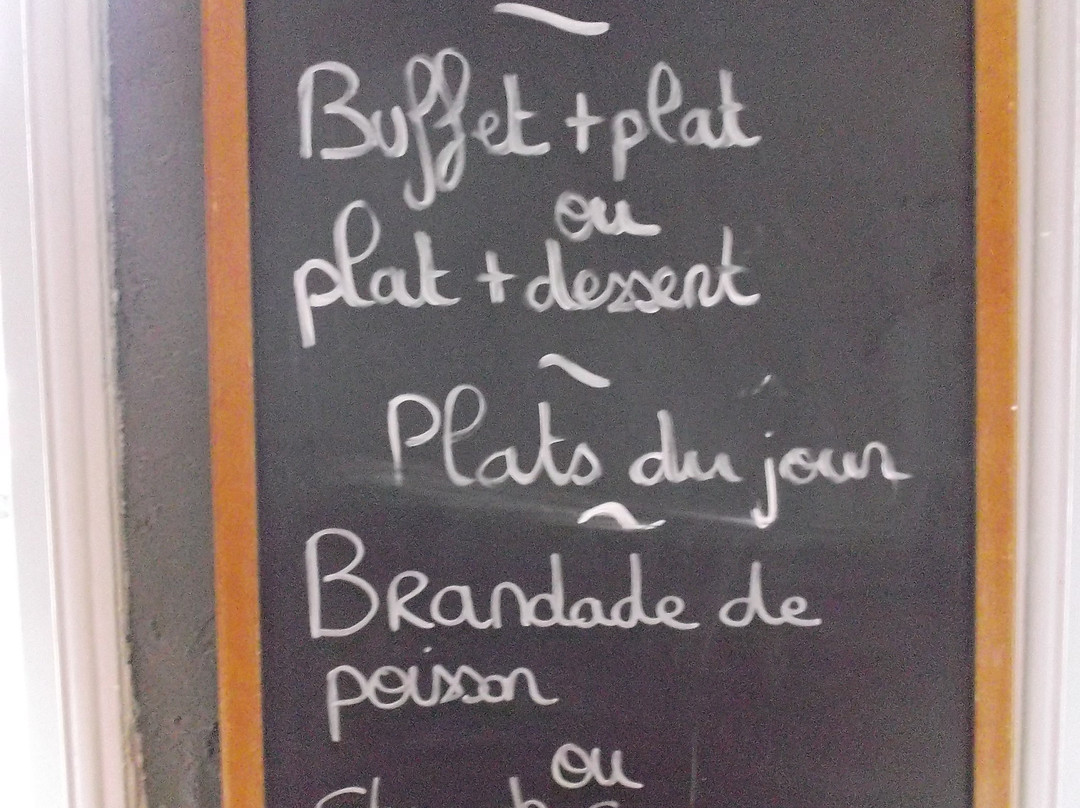 Buffet + plat
ou
plat + dessert
Plats du jour
Brandade de
poisson
ou